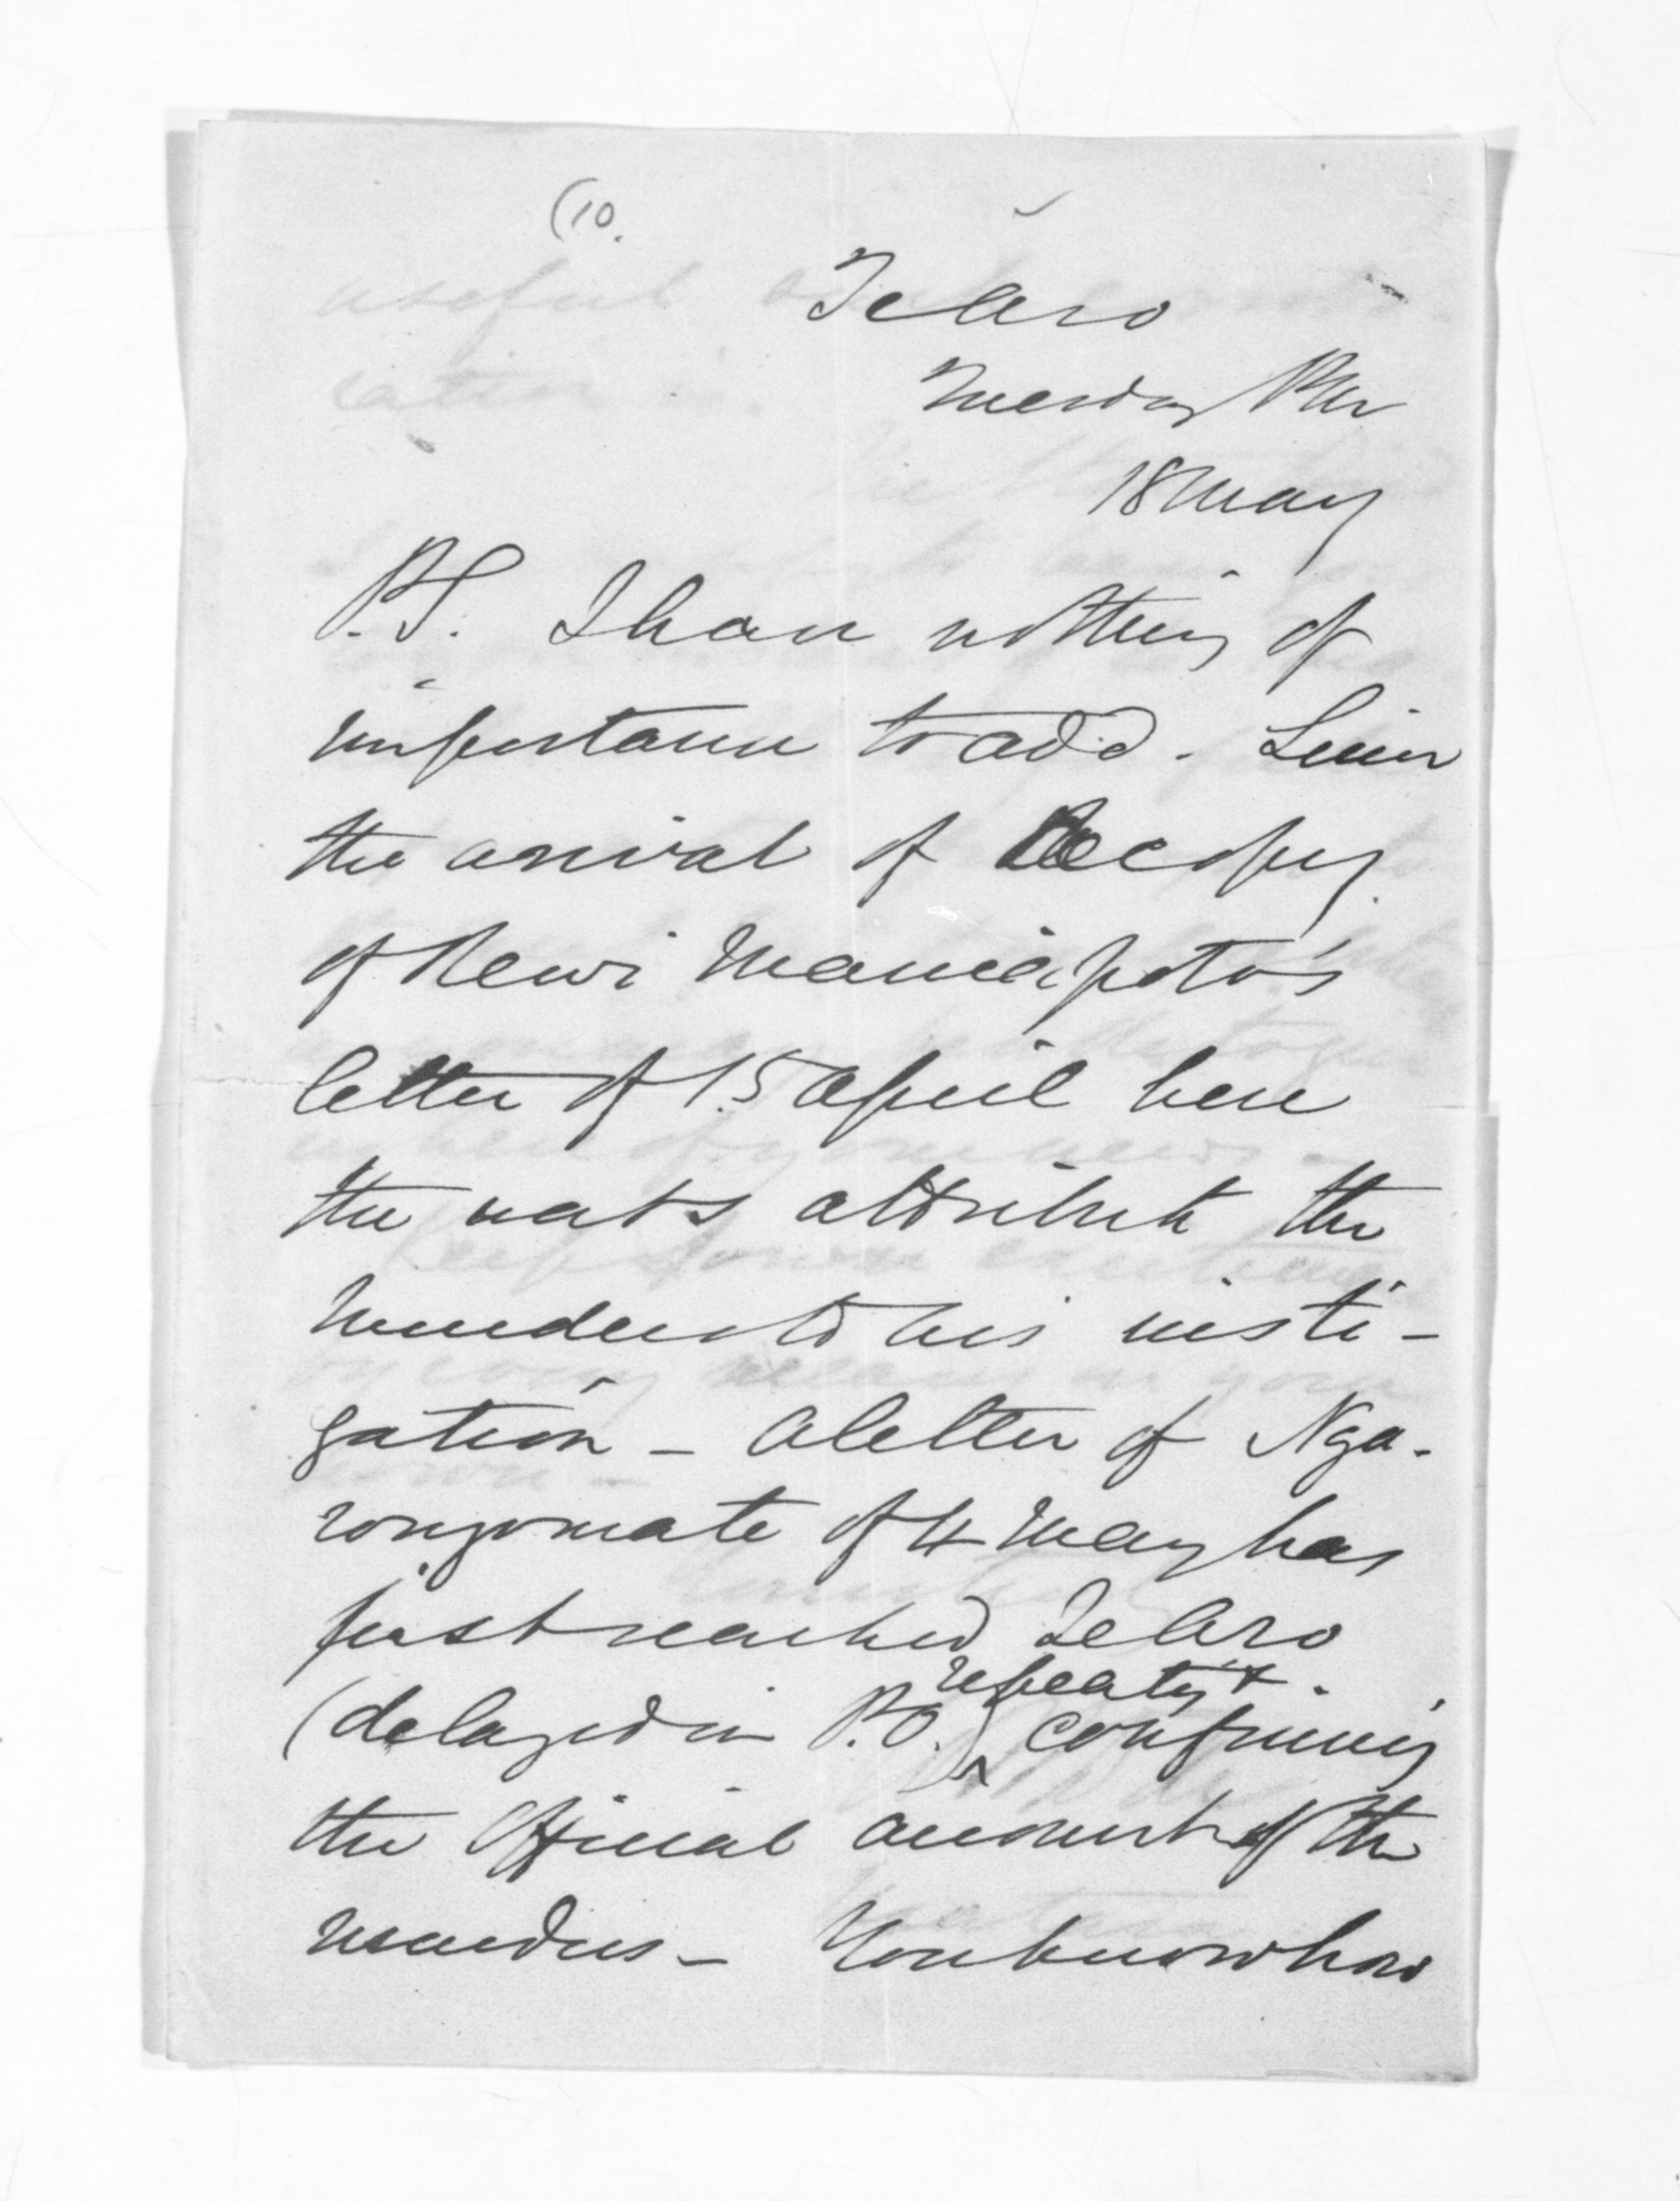 (10.
Te Aro
Tuesday PM
18 May
P.S. I have nothing of
importance to add. Since
the arrival of copy
of Rewi Maniapoto's
letter of 15 April here
the nats attribute the
murders to his insti-
gation - A letter of Nga-
rongomate of 4 May has
just reached Te Aro
(delayed in P.O.) repeatg & confirming
the official account of the
murders - You know how